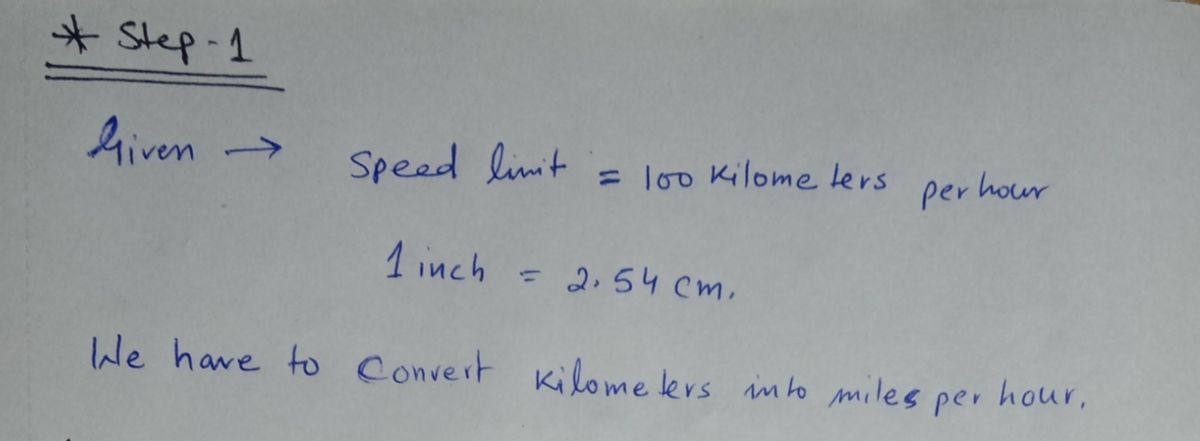 * Step-1
Given → Speed limit = 100 Kilometers per hour
1 inch = 2.54 cm.
We have to Convert Kilometers into miles per hour.